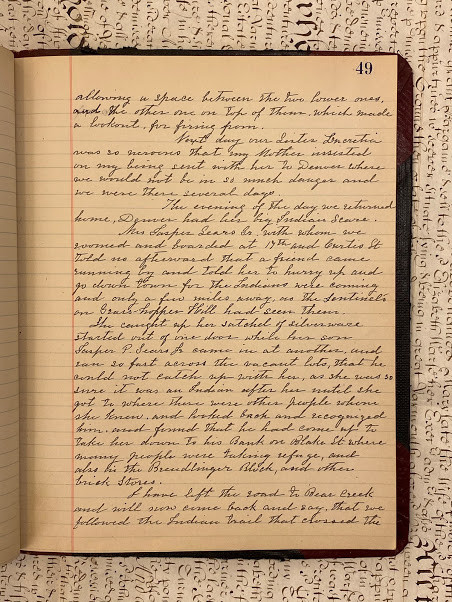 49
allowing a space between the two lower ones,
and the other one on top of them which made
a lookout, for firing from.
Next day our Sister Lucretia
was so nervous that my Mother insisted
on my being sent with her to Denver where
we would not be in so much danger and
we were there several days.
The evening of the day we returned
home, Denver had her big Indian Scare.
Mrs Jasper Sears Co. with whom we
roomed and boarded at 17th and Curtis St
told us afterward that a friend came
running by and told her to hurry up and
go down town for the Indians were coming
and only a few miles away, as the Sentinels
on Grass-hopper Hill had seen them.
She caught up her satchel of silverware
started out of one door while her son
Jasper P. Sears Jr came in at another, and
ran so fast across the vacant lots, that he
could not catch up with her, as she was so
sure it was an Indian after her until she
got to where there were other people whom
she knew, and looked back and recognized
him. and found that he had come up to
take her down to his Bank on Blake St where
many people were taking refuge, and
also in the Brendlinger Block, and other
brick Stores.
I have left the road to Bear Creek
and will now come back and say, that we
followed the Indian trail that crossed the